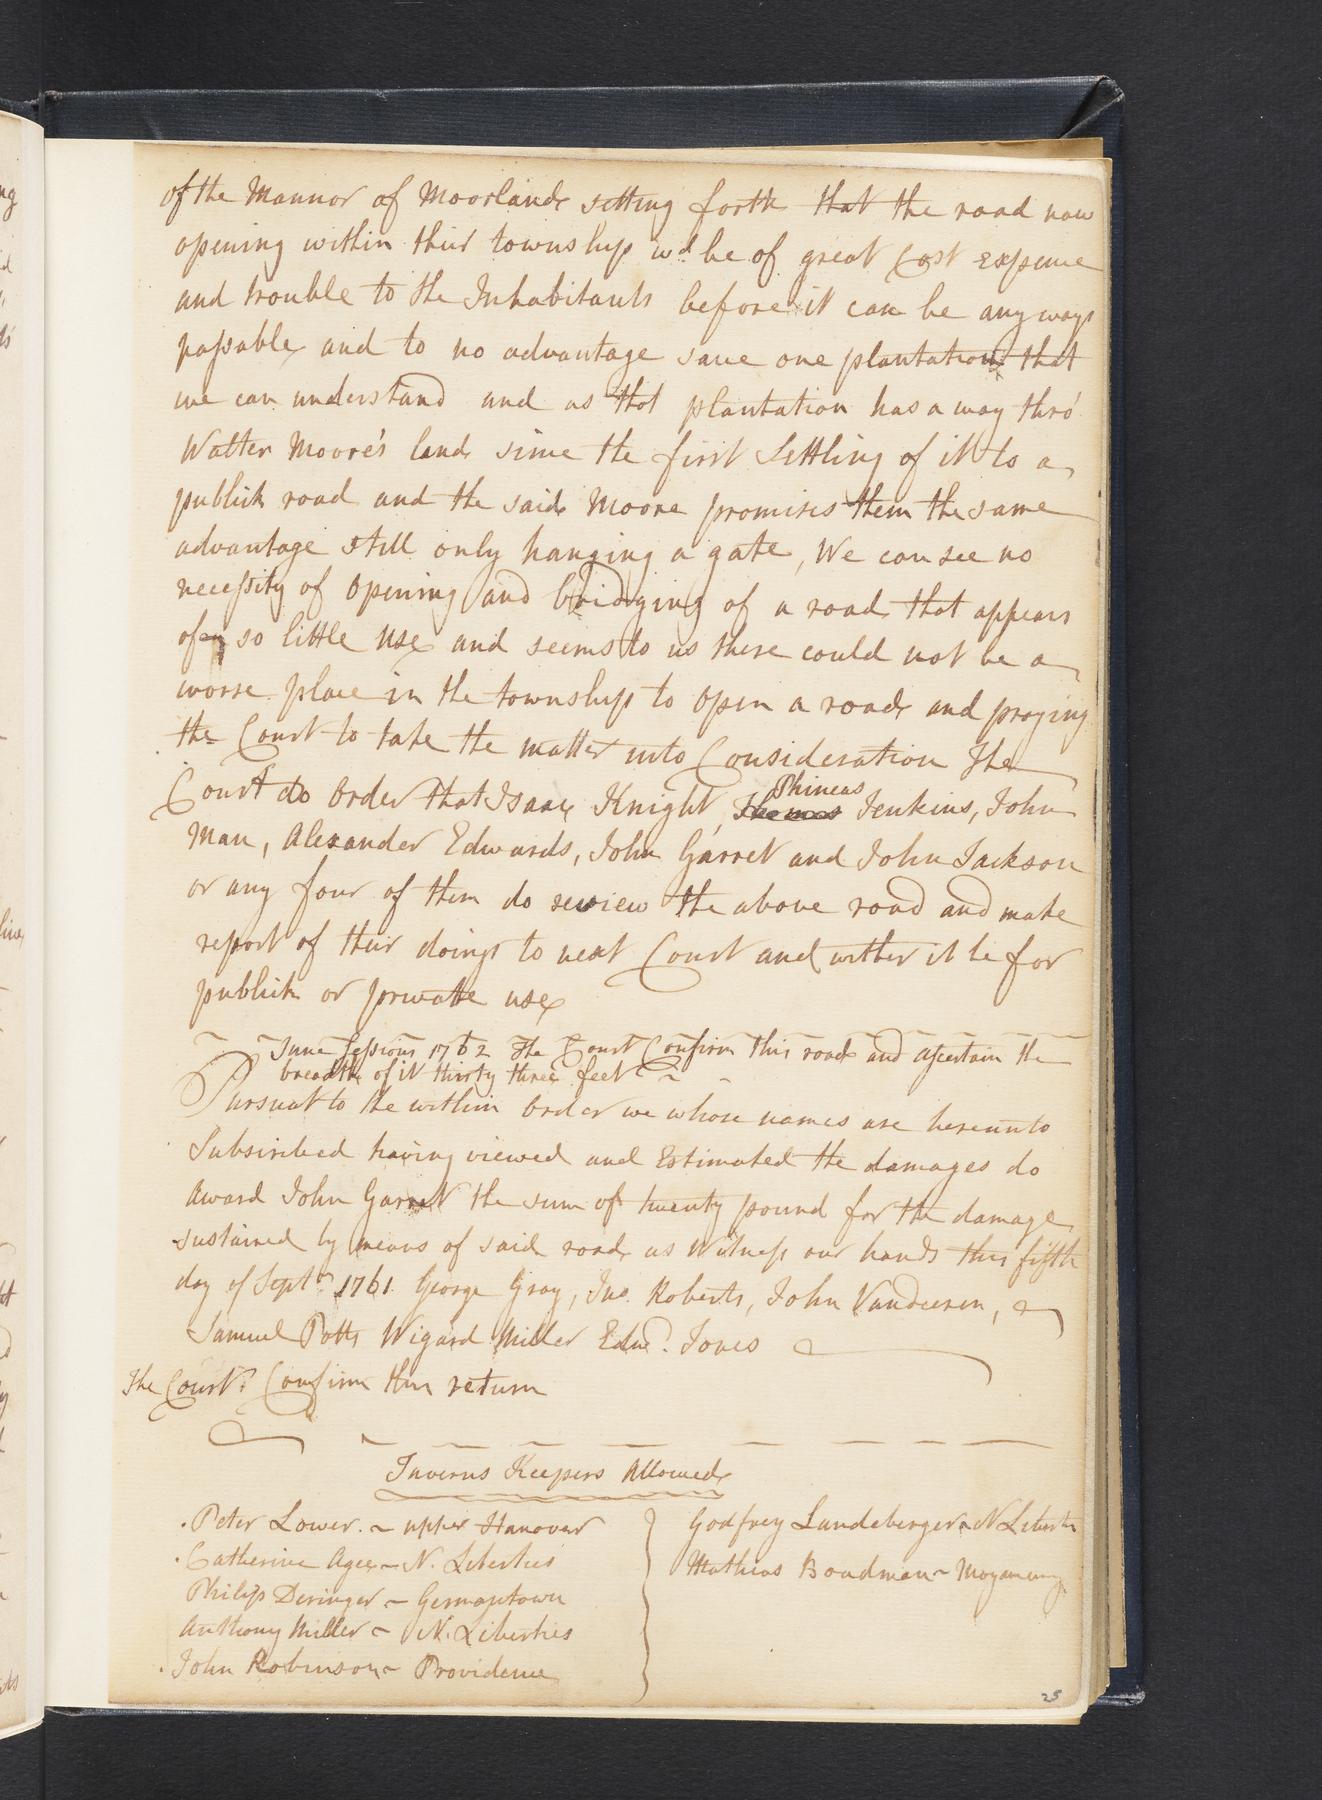 of the Mannor of Moorland setting forth that the road now
opening within their township wd. be of great Cost expence
and trouble to the Inhabitants before it can be any ways
passable and to no advantage save one plantation that
we can understand and as that plantation has a way thro'
Walter Moore's land since the first Settling of it to a
publick road and the said Moore promises them the same
advantage still only hanging a gate, We can see no
necessity of opening and bridging of a road that appears
of so little use and seems to us there could not be a
worse place in the township to open a road and praying
the Court to take the matter into Consideration The
Phineas
Court do Order that Isaac Knight, Thomas Jenkins, John
Man, Alexander Edwards, John Garret and John Jackson
or any four of them do review the above road and make
report of their doings to next Court and wether it be for
publick or private use
June Sessions 1762 The Court Confirm this road and assertain the
breadth of it thirty three feet
Pursuat to the within Order we whose names are hereunto
Subscribed having viewed and Estimated the damages do
Award John Garret the sum of twenty pound for the damage
sustained by means of said road as Witness our hands this fifth
day of Septr. 1761 George Gray, Jno. Roberts, John Vandeeren,
Samuel Potts Wigard Miller Edwd. Jones
The Court Confirm this return
Taverns Keepers Allowed
Peter Lower - upper Hanover
Catherine Agee - N. Liberties
Philip Deringer - Germantown
Anthony Miller - N. Liberties
John Robinson - Providence
Godfrey Lundeberger - N Liberties
Mathias Boudman - Moyamung
25